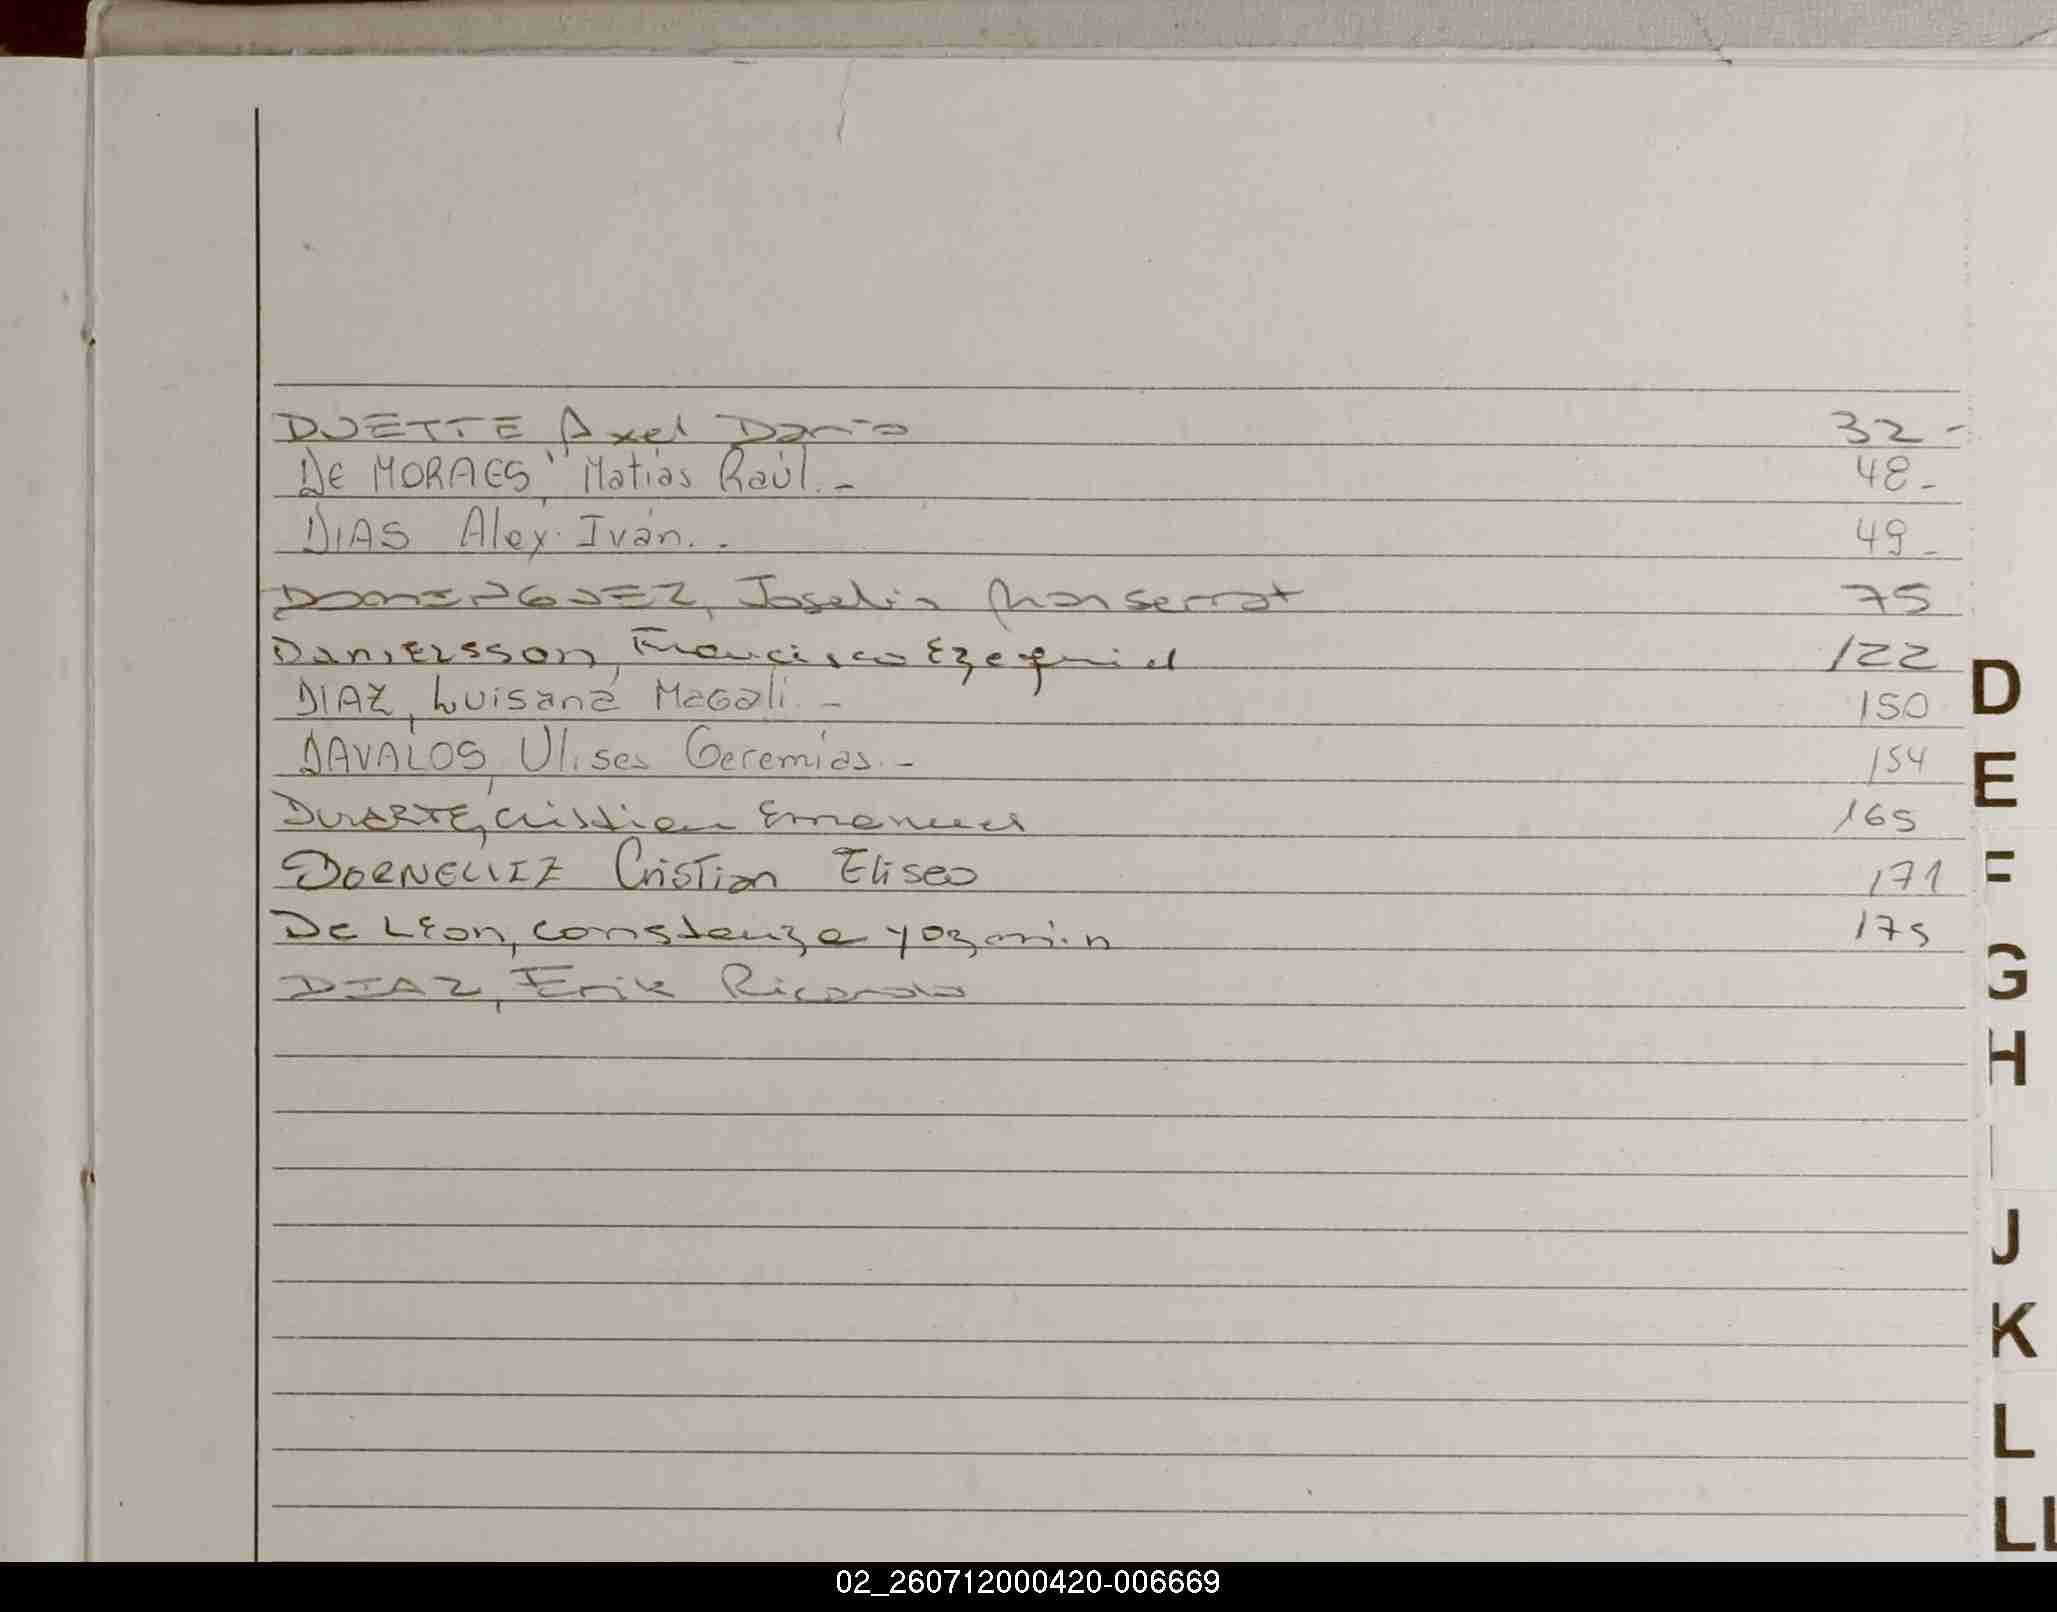 DUETTE Axel Dario 32-
DE MORAES, Matías Raúl.- 48-
DIAS Alex Iván.- 49-
DOMINGUEZ, Joselin Monserrat 75
DANIELSSON, Francisco Ezequiel 122
DIAZ, Luisana Magali.- 150
DAVALOS, Ulises Geremías.- 154
DUARTE, Cristian Emanuel 165
DORNELLIZ Cristian Eliseo 171
De Leon, Constanza Yozmin 175
DIAZ, Erik Ricardo
D
E
F
G
H
I
J
K
L
LL
02_260712000420-006669